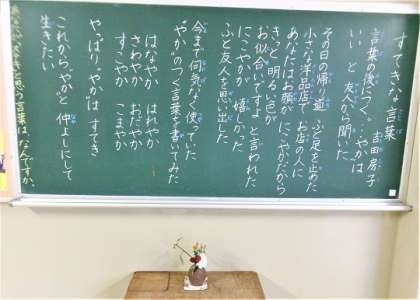 すてきな言葉
吉田房子
言葉の後につく やかは
いい と 友人から聞いた
その日の帰り道 ふと足を止めた
小さな洋品店で お店の人に
あなたはお顔が にこやかだから
きっと 明るい色が
お似合いですよ と言われた
にこやかが 嬉しかった
ふと友人を思い出した
今まで何気なく使っていた
"やか"のつく言葉を書いてみた
はなやか はれやか
さわやか おだやか
すこやか こまやか
やっぱり やかは すてき
これから やかと 仲よしにして
生きたい
あなたが大好きと思う言葉は、なんですか。